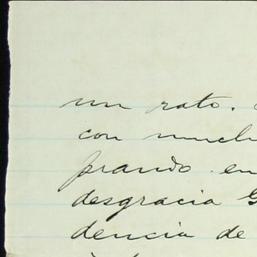 un rato.
con much
prando en
desgracia G
dencia de